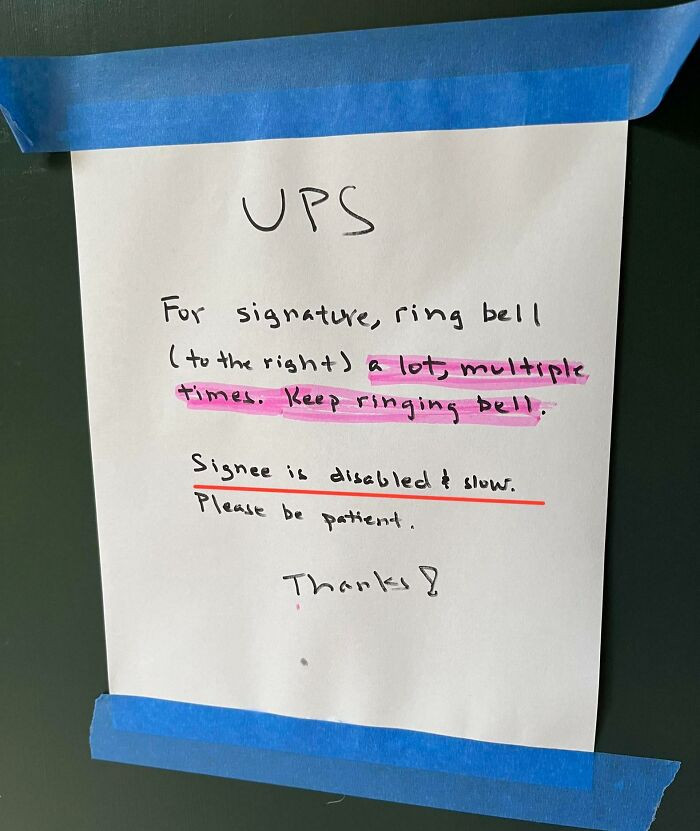 UPS
For signature, ring bell
(to the right) a lot, multiple
times. Keep ringing bell.
Signee is disabled & slow.
Please be patient.
Thanks!